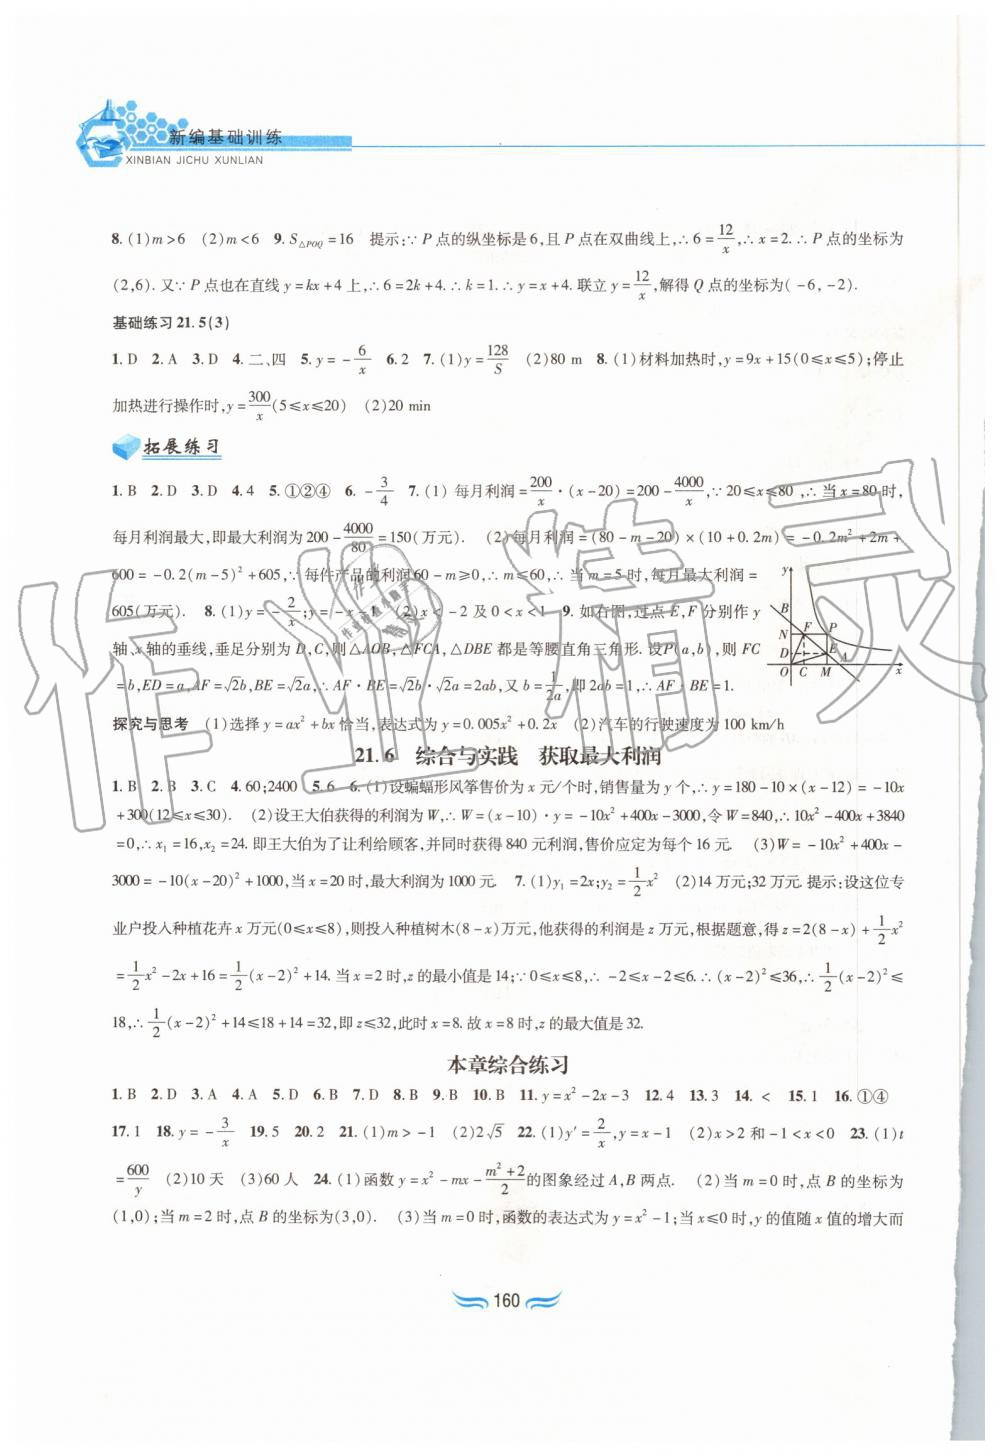 新编基础训练
XINBIAN JICHU XUNLIAN
8. (1)m>6 (2)m<6 9. S△POQ=16 提示:∵P点的纵坐标是6,且P点在双曲线上,∴6=12/x,∴x=2.∴P点的坐标为
(2,6). 又∵P点也在直线y=kx+4上,∴6=2k+4.∴k=1.∴y=x+4. 联立y=12/x,解得Q点的坐标为(-6,-2).
基础练习21.5(3)
1. D 2. A 3. D 4. 二、四 5. y=-6/x 6. 2 7. (1)y=128/S (2)80 m 8. (1)材料加热时,y=9x+15(0≤x≤5);停止
加热进行操作时,y=300/x(5≤x≤20) (2)20 min
拓展练习
1. B 2. D 3. D 4. 4 5. ①②④ 6. -3/4 7. (1) 每月利润=200/x·(x-20)=200-4000/x,∵20≤x≤80,∴当x=80时,
每月利润最大,即最大利润为200-4000/80=150(万元). (2)每月利润=(80-m-20)×(10+0.2m)=-0.2m²+2m+
600=-0.2(m-5)²+605,∵每件产品的利润60-m≥0,∴m≤60,∴当m=5时,每月最大利润=
605(万元). 8. (1)y=-2/x;y=-x-1 (2)x<-2及0<x<1 9. 如右图,过点E,F分别作y
轴、x轴的垂线,垂足分别为D,C,则△AOB,△FCA,△DBE都是等腰直角三角形. 设P(a,b),则FC
=b,ED=a,AF=√2b,BE=√2a,∴AF·BE=√2b·√2a=2ab,又b=1/2a,即2ab=1,∴AF·BE=1.
y
B
N F P
D E A
O C M x
探究与思考 (1)选择y=ax²+bx恰当,表达式为y=0.005x²+0.2x (2)汽车的行驶速度为100 km/h
21.6 综合与实践 获取最大利润
1. B 2. B 3. C 4. 60;2400 5. 6 6. (1)设蝙蝠形风筝售价为x元/个时,销售量为y个,∴y=180-10×(x-12)=-10x
+300(12≤x≤30). (2)设王大伯获得的利润为W,∴W=(x-10)·y=-10x²+400x-3000,令W=840,∴10x²-400x+3840
=0,∴x₁=16,x₂=24. 即王大伯为了让利给顾客,并同时获得840元利润,售价应定为每个16元. (3)W=-10x²+400x-
3000=-10(x-20)²+1000,当x=20时,最大利润为1000元. 7. (1)y₁=2x;y₂=1/2x² (2)14万元;32万元. 提示:设这位专
业户投入种植花卉x万元(0≤x≤8),则投入种植树木(8-x)万元,他获得的利润是z万元,根据题意,得z=2(8-x)+1/2x²
=1/2x²-2x+16=1/2(x-2)²+14. 当x=2时,z的最小值是14;∵0≤x≤8,∴-2≤x-2≤6.∴(x-2)²≤36,∴1/2(x-2)²≤
18,∴1/2(x-2)²+14≤18+14=32,即z≤32,此时x=8. 故x=8时,z的最大值是32.
本章综合练习
1. B 2. D 3. A 4. A 5. D 6. B 7. D 8. B 9. B 10. B 11. y=x²-2x-3 12. 4 13. 3 14. < 15. 1 16. ①④
17. 1 18. y=-3/x 19. 5 20. 2 21. (1)m>-1 (2)2√5 22. (1)y′=2/x,y=x-1 (2)x>2和-1<x<0 23. (1)t
=600/y (2)10天 (3)60人 24. (1)函数y=x²-mx-(m²+2)/2的图象经过A,B两点. (2)当m=0时,点B的坐标为
(1,0);当m=2时,点B的坐标为(3,0). (3)当m=0时,函数的表达式为y=x²-1;当x≤0时,y的值随x值的增大而
160
作业精灵